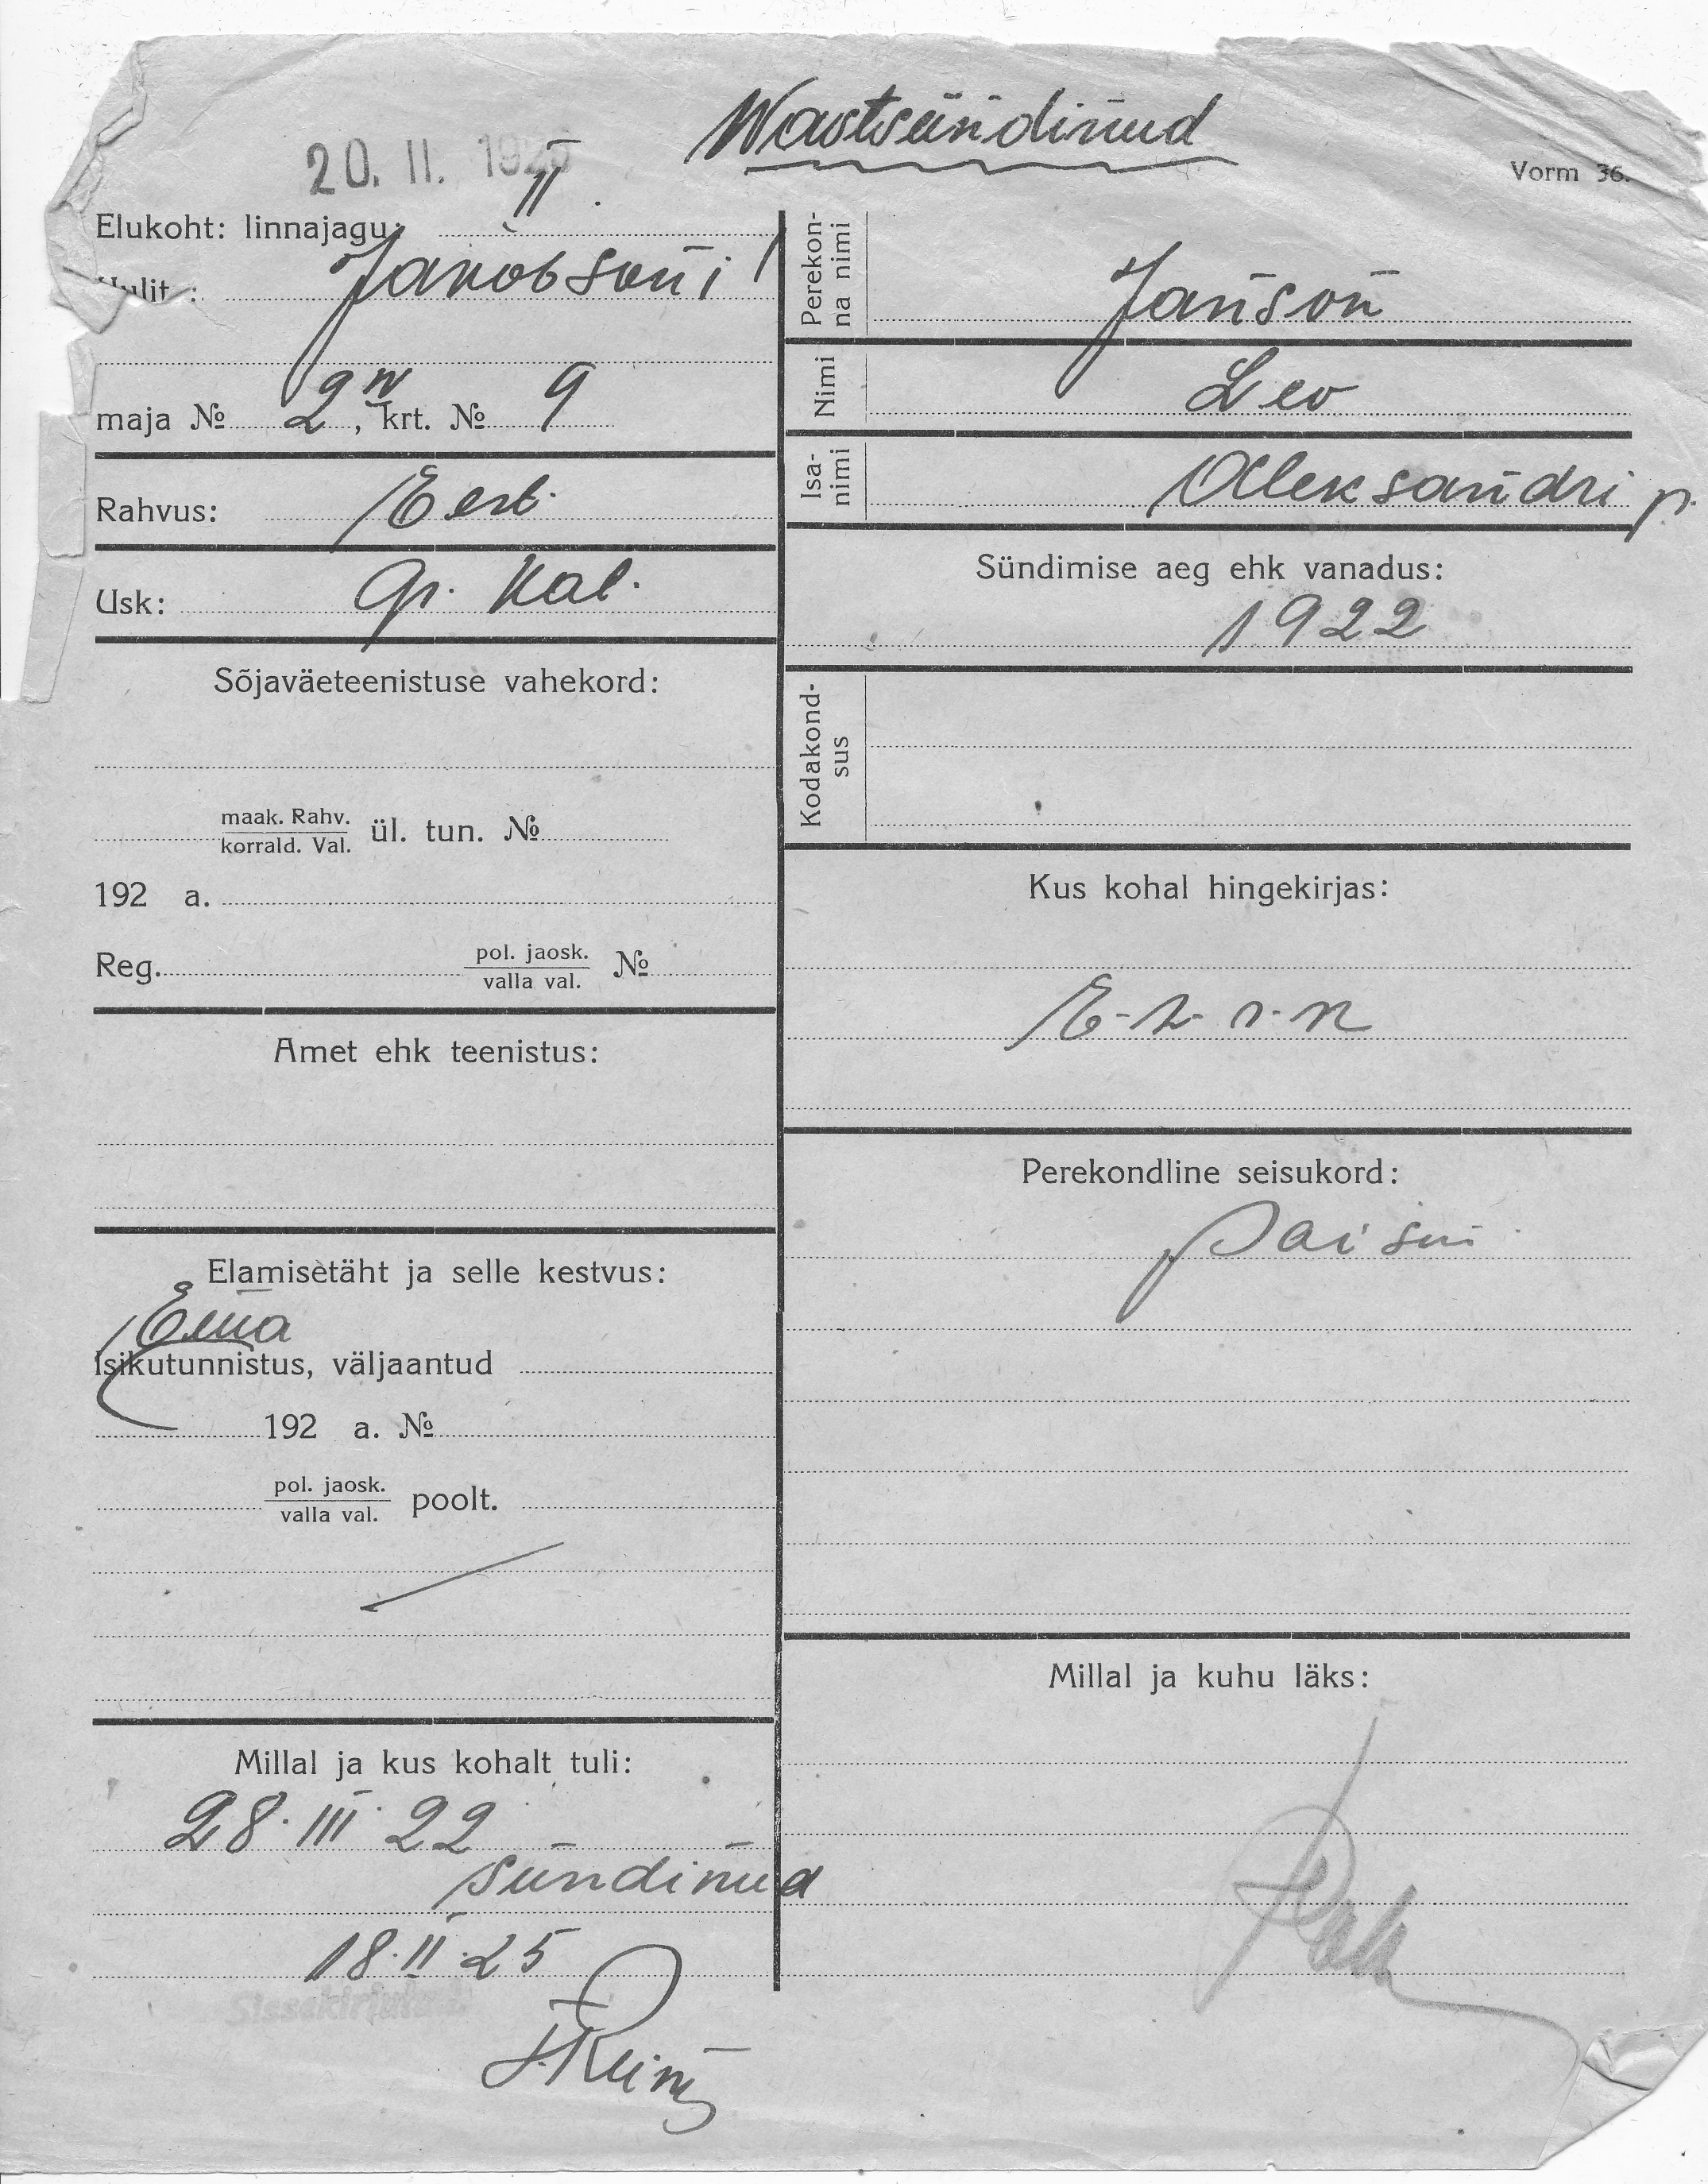 Wastsündinud
20. II. 192
Vorm 36.
Elukoht: linnajagu: II
Uulits: Jakobsoni
maja № 2, krt. № 9
Rahvus: Eest.
Usk: Gr. Kat.
Sõjaväeteenistuse vahekord:
maak. Rahv.
korrald. Val.
ül. tun. №
192 a.
Reg. pol. jaosk. №
valla val.
Amet ehk teenistus:
Elamisetäht ja selle kestvus:
Ema
Isikutunnistus, väljaantud
192 a. №
pol. jaosk.
valla val.
poolt.
Millal ja kus kohalt tuli:
28. III 22
sündinud
18. II. 25
Sissekirjutud
Perekon-
na nimi
Janson
Nimi
Leo
Isa-
nimi
Aleksandri p.
Sündimise aeg ehk vanadus:
1922
Kodakond-
sus
Kus kohal hingekirjas:
Perekondline seisukord:
Millal ja kuhu läks: